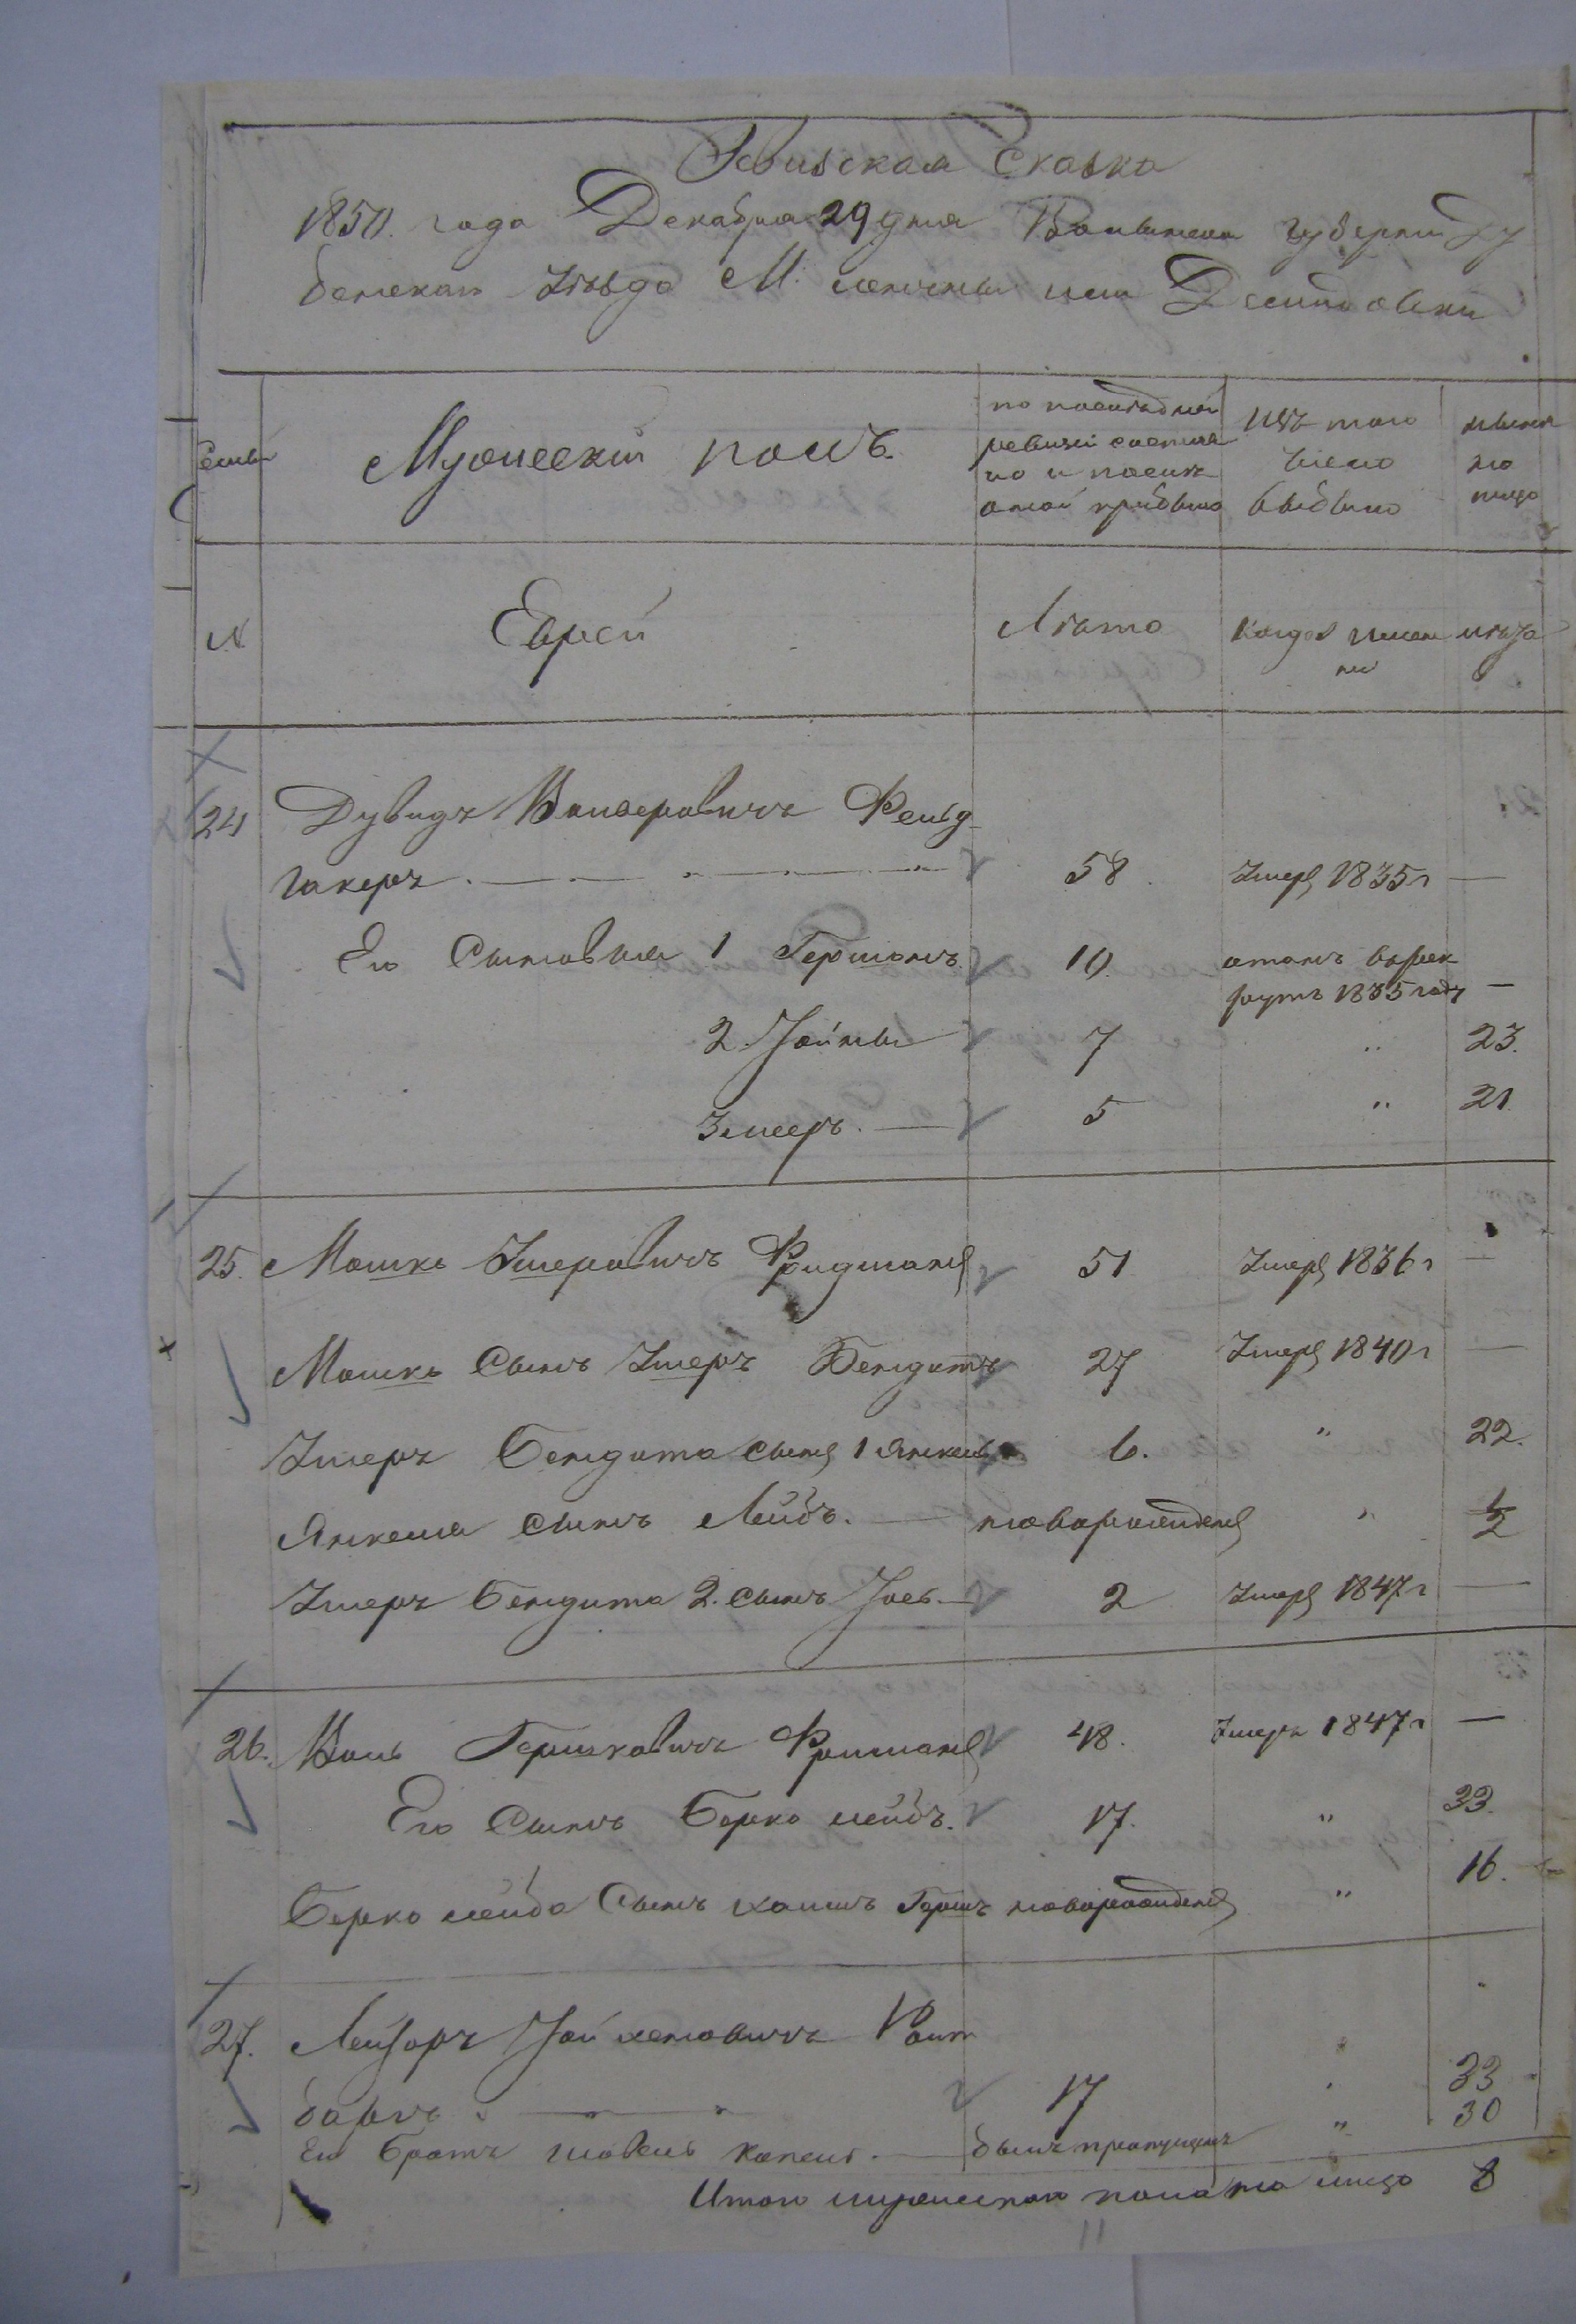 Ревизская Сказка
1850. года Декабря 29 дня Волынской Губернии Ду
бенскаго уезда М. или Демидовки
Семьи
Мужеский полъ.
по последней ревизии состояло и после оной прибыло
изъ того числа выбыло
ныне на лицо
N
Еврей
Лета
Когда именно
Лета
24 Дувидъ Волверовичъ Фельд-
гакеръ . — . — " 58. умеръ 1835 г —
Его Сыновья 1 Гершонъ 10. отданъ в рек
рутъ 1835 году —
2 Хаймъ 7 " 23.
3 меер. — 5 " 21
25. Мошко Умеровичъ Фридманъ 51 умеръ 1836 г —
Мошко Сынъ Умеръ Бендитъ 27 умеръ 1840 г —
Умеръ Бендита сынъ 1 Янкель 6. " 22.
Янкеля сынъ Лейбъ. — новорожденъ " 1/2
Умеръ Бендита 2. сынъ Іось. — 2 умеръ 1847 г —
26. Воль Гершковичъ Фриманъ 48. умеръ 1847 г —
Его Сынъ Берко лейбъ. 17. " 33.
Берко лейба Сынъ Хаимъ Гершъ новорожденъ " 16.
27. Лейзоръ Роит
баръ . — " 17 " 33
Его Братъ копель . — былъ пропущенъ " 30
Итого мужескаго пола на лицо 8
11